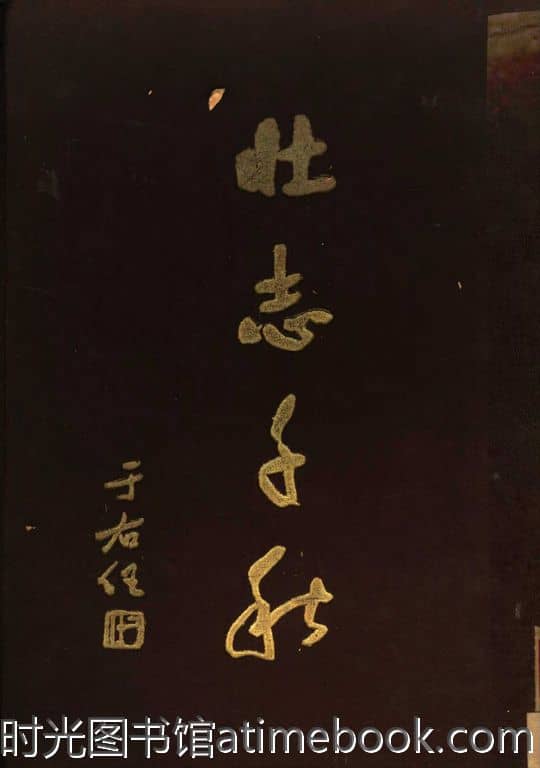 壮志千秋
于右任
时光图书馆atimebook.com